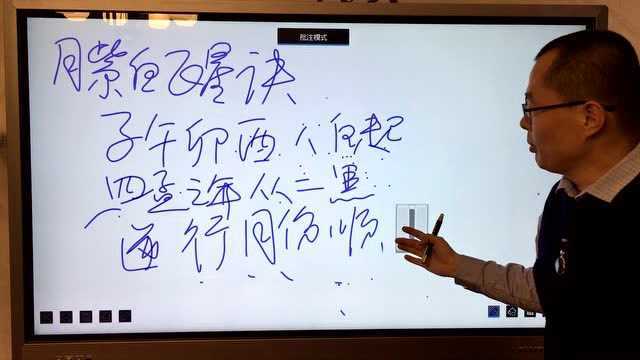 批注模式
月紫白飞星诀
子午卯酉八白起
四孟之年从二黑
逆行月份顺